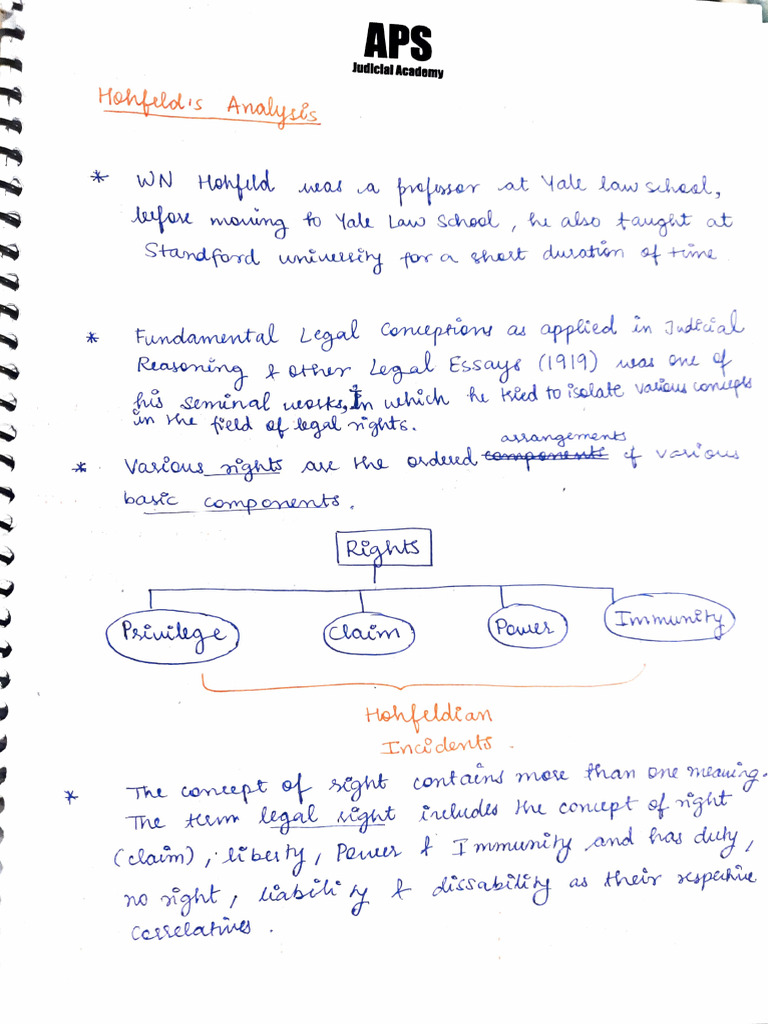 APS
Judicial Academy
Hohfeld's Analysis
* WN Hohfeld was a professor at Yale law school,
before moving to Yale Law School, he also taught at
Standford university for a short duration of time
* Fundamental Legal Conceptions as applied in Judicial
Reasoning & other Legal Essays (1919) was one of
his seminal works, In which he tried to isolate various concepts
in the field of legal rights.
arrangements
* Various rights are the ordered components of various
basic components.
Rights
Privilege Claim Power Immunity
Hohfeldian
Incidents.
* The concept of right contains more than one meaning.
The term legal right includes the concept of right
(claim), liberty, Power & Immunity and has duty,
no right, liability & dissability as their respective
correlatives.